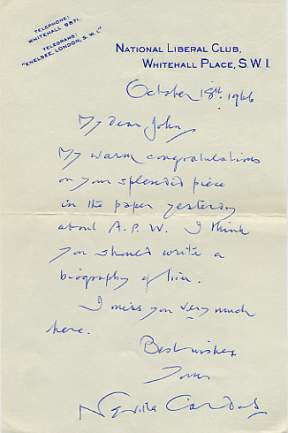 TELEPHONE:
WHITEHALL 9871.
TELEGRAMS:
"ENELSEE, LONDON, S.W.1."
NATIONAL LIBERAL CLUB,
WHITEHALL PLACE, S.W.1.
October 18th. 1966
My dear John,
My warm congratulations
on your splendid piece
in the paper yesterday
about A.P.W. I think
you should write a
biography of him.
I miss you very much
here.
Best wishes
Yours
Neville Cardus